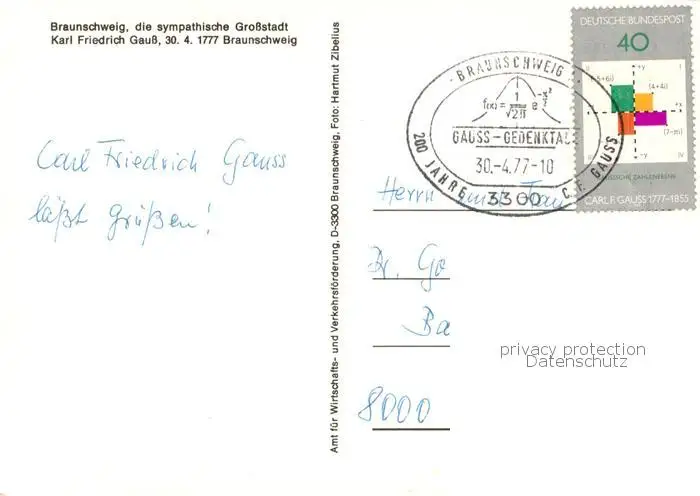 Braunschweig, die sympathische Großstadt
Karl Friedrich Gauß, 30. 4. 1777 Braunschweig
Carl Friedrich Gauss
läßt grüßen!
Amt für Wirtschafts- und Verkehrsförderung, D-3300 Braunschweig, Foto: Hartmut Zibelius
· BRAUNSCHWEIG ·
f(x) = 1/√2π e^-x²/2
GAUSS-GEDENKTAG
30.-4.77-10
3300
200 JAHRE C.F. GAUSS
DEUTSCHE BUNDESPOST
40
II +y I
(-5+6i) (4+4i)
+x
(7-πi)
-y IV
CARL F. GAUSS 1777-1855
Herrn und Frau
Dr. Go
Ba
8000
privacy protection
Datenschutz